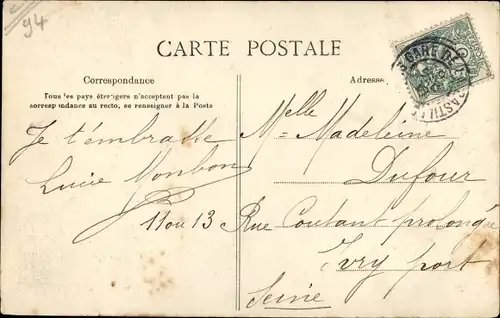 94
CARTE POSTALE
Correspondance
Tous les pays étrangers n'acceptent pas la
correspondance au recto, se renseigner à la Poste
Je t'embrasse
Lucie
Adresse
GARE DE
BASTILLE
Melle
Madeleine
Dufour
11 ou 13 Rue Coutant prolongée
Ivry port
Seine